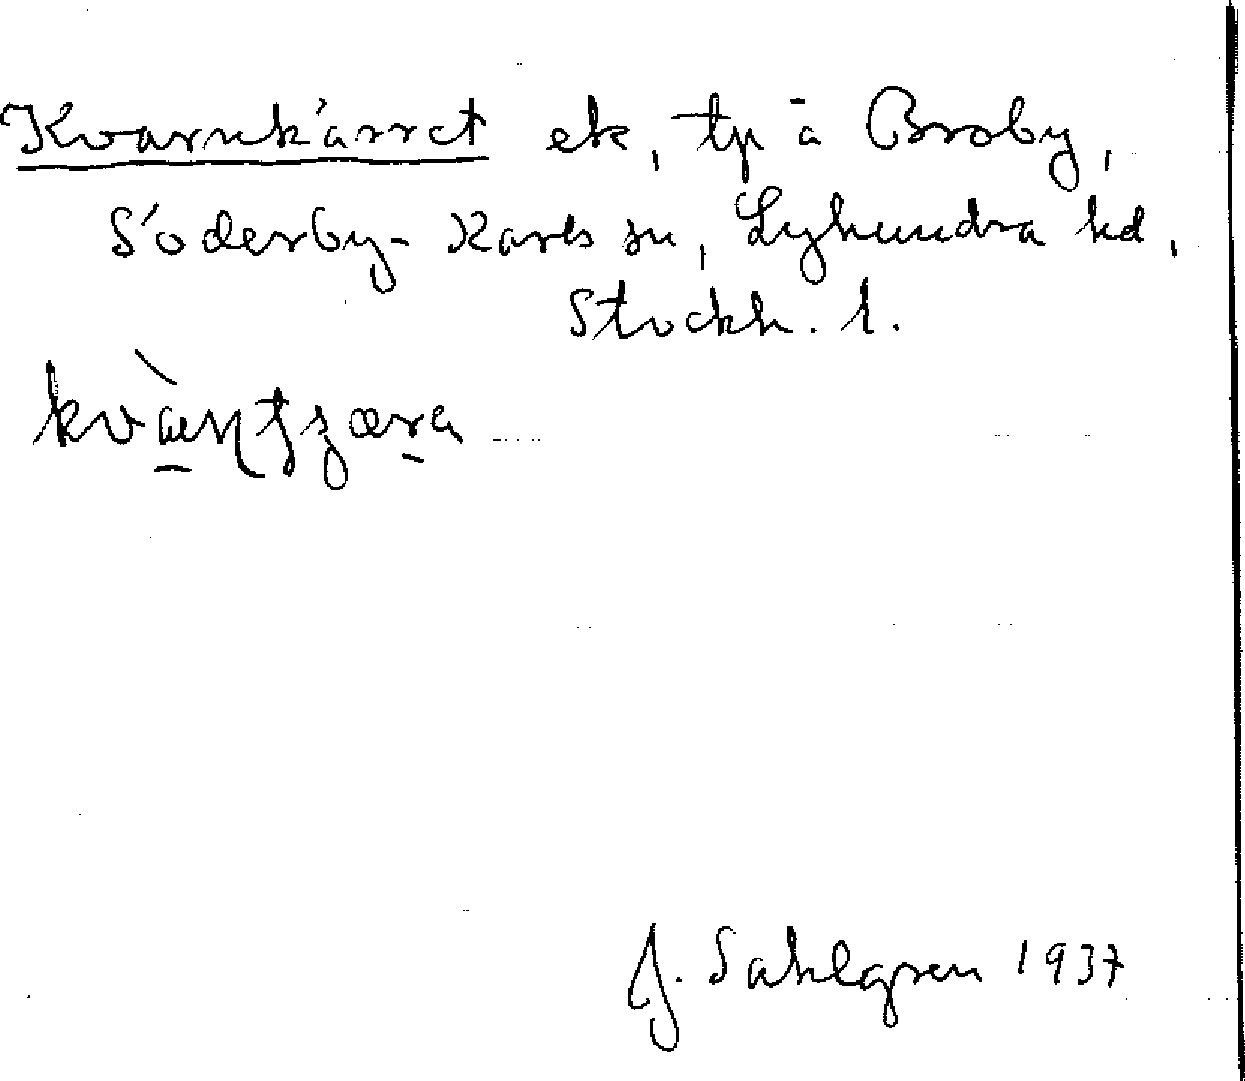 Kvarnkärret ek, tp å Broby,
Söderby-Karls sn, Lyhundra hd,
Stockh. l.
J. Sahlgren 1937